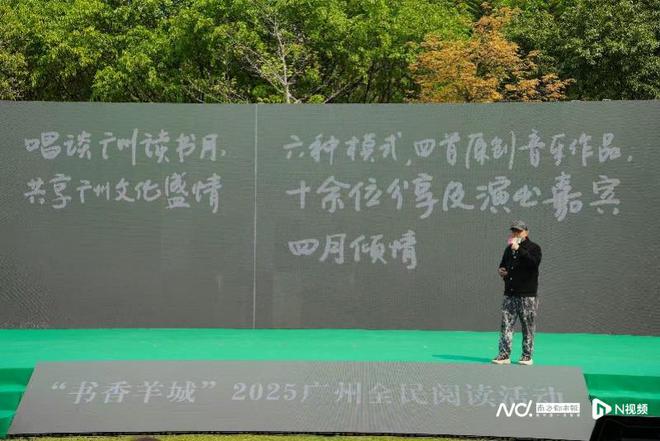 唱谈广州读书月,
共享广州文化盛情
六种模式,四首原创音乐作品,
十余位分享及演出嘉宾
四月倾情
“书香羊城”2025广州全民阅读活动
ND. 南方都市报
N视频